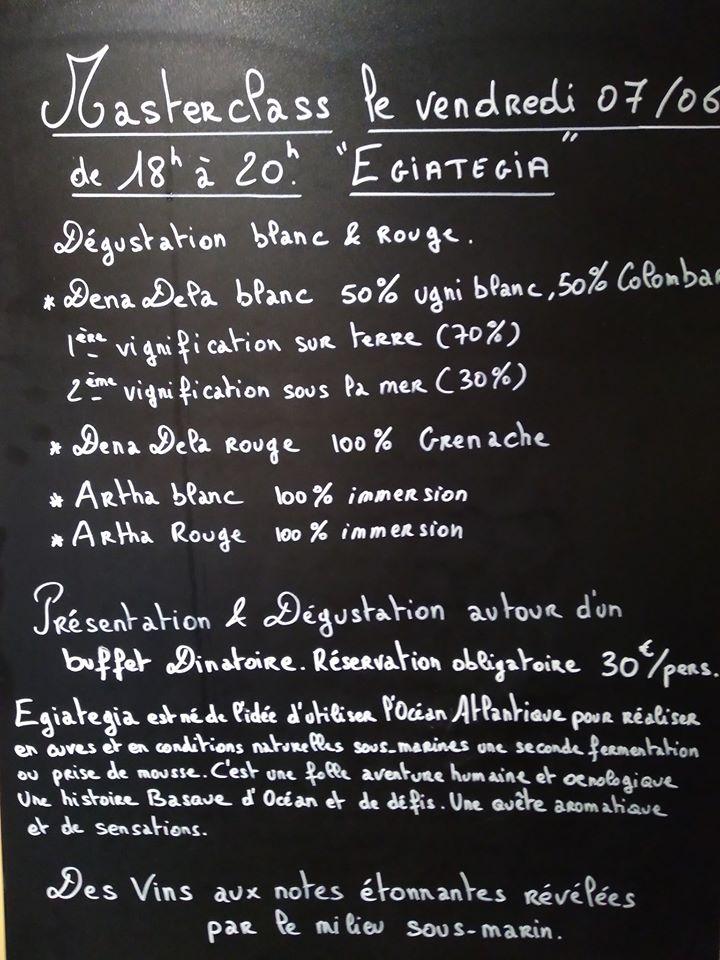 Masterclass le vendredi 07/06
de 18h à 20h. "EGIATEGIA"
Dégustation blanc & Rouge.
* Dena Dela blanc 50% ugni blanc, 50% Colombar
1ère vignification sur terre (70%)
2ème vignification sous la mer (30%)
* Dena Dela Rouge 100% Grenache
* Artha blanc 100% immersion
* Artha Rouge 100% immersion
Présentation & Dégustation autour d'un
buffet Dinatoire. Réservation obligatoire 30€/pers.
Egiategia est né de l'idée d'utiliser l'Océan Atlantique pour réaliser
en cuves et en conditions naturelles sous-marines une seconde fermentation
ou prise de mousse. C'est une folle aventure humaine et œnologique
Une histoire Basque d'Océan et de défis. Une quête aromatique
et de sensations.
Des Vins aux notes étonnantes révélées
par le milieu sous-marin.